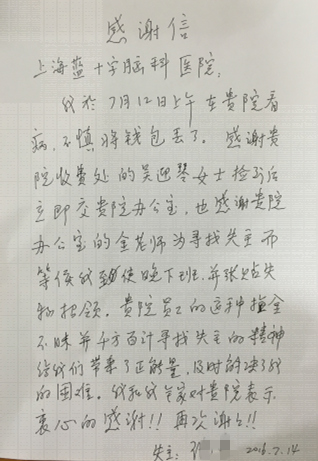 感谢信
上海蓝十字脑科医院，
我於7月12日上午在贵院看
病，不慎将钱包丢了。感谢贵
院收费处的吴迎琴女士捡到后
立即交贵院办公室，也感谢贵院
办公室的金老师为寻找失主而
等侯我到使晚下班，并张贴失
物招领。贵院员工的这种拾金
不昧并千方百计寻找失主的精神
给我们带来了正能量，及时解决了我
的困难。我和我全家对贵院表示
衷心的感谢!! 再次谢谢!!
失主：
2016.7.14